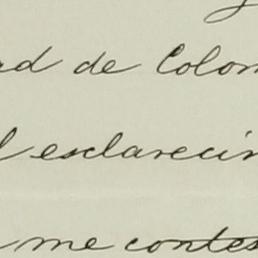 ad de Colom
l esclarecim
me contes